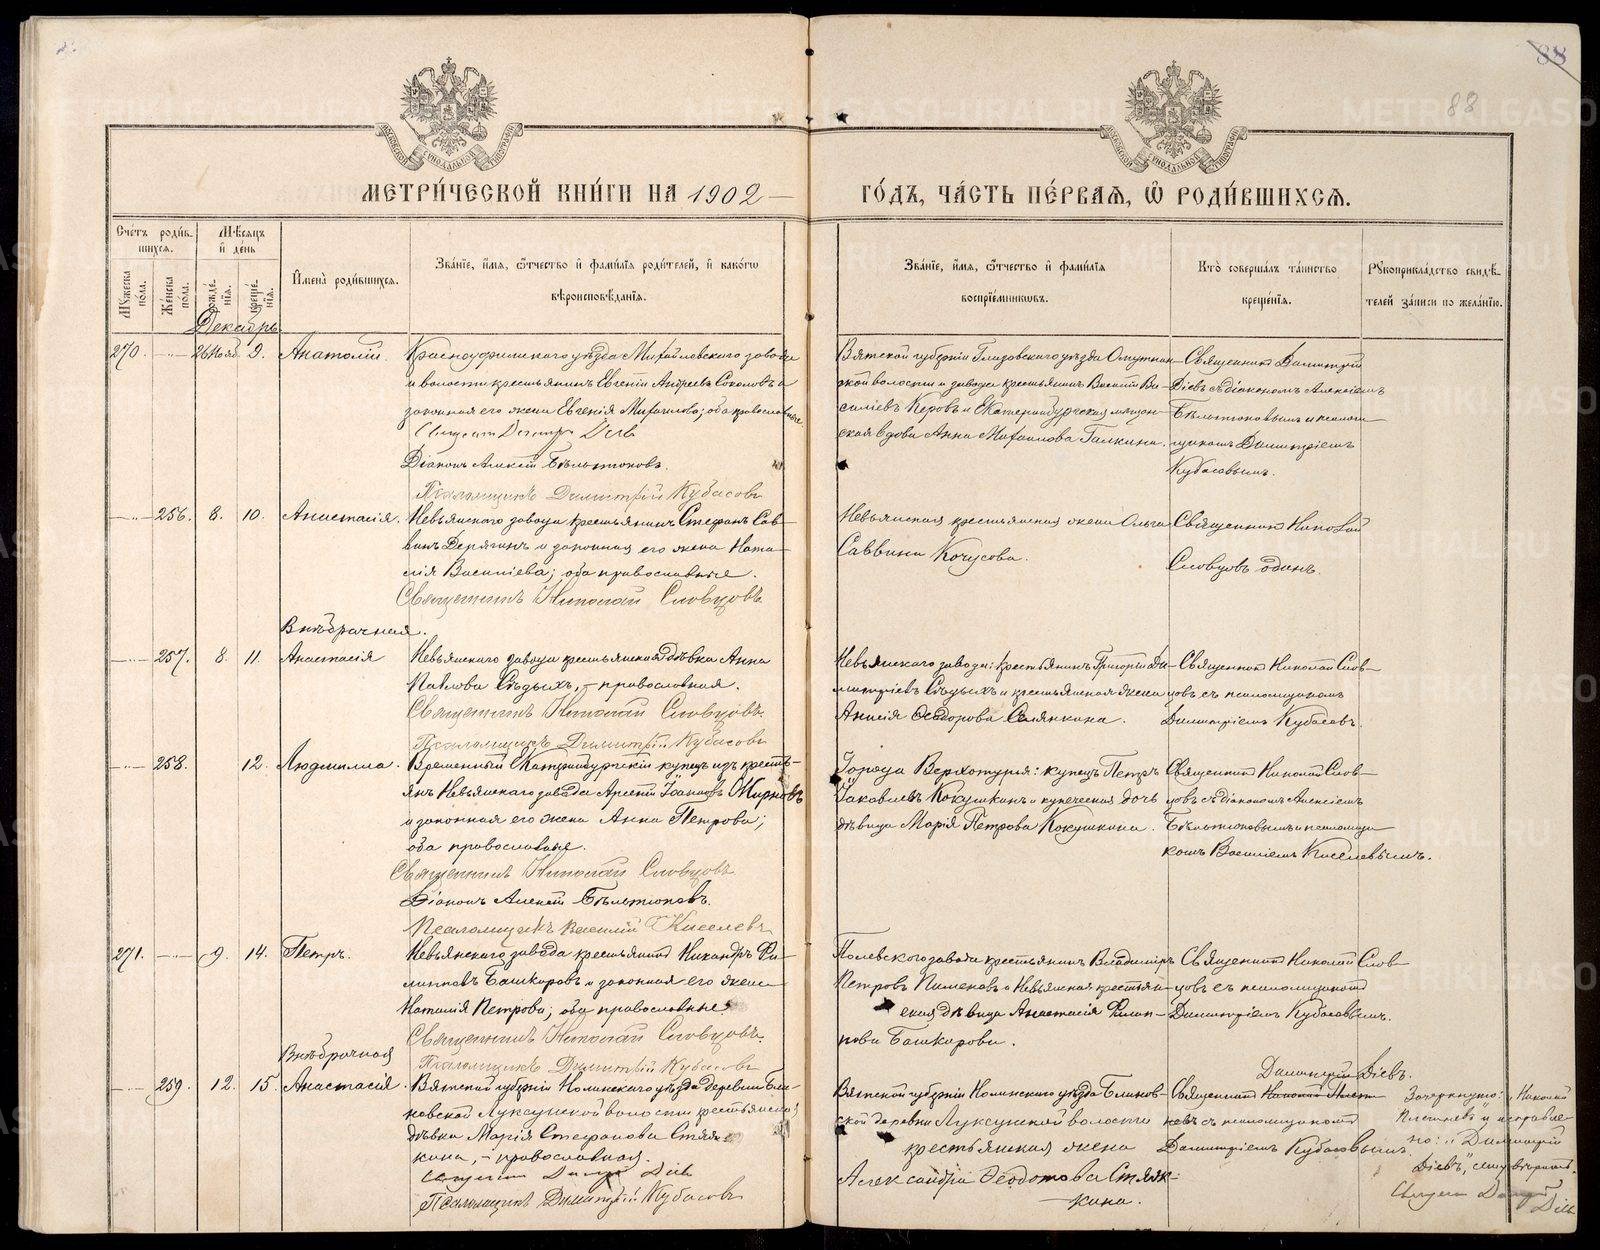 88
88
МЕТРИ́ЧЕСКОЙ КНИ́ГИ НА 1902 ГО́ДЪ, ЧА́СТЬ ПЕ́РВАѦ, Ѡ҆ РОДИ́ВШИХСѦ.
Счетъ роди́вшихсѧ.
Мужеска по́ла.
Же́нска пола.
Мѣ́сѧцъ и҆ де́нь
рожде́нїѧ.
креще́нїѧ.
И҆мена̀ роди́вшихсѧ.
Зва́нїе, и҆́мѧ, ѻ҆́тчество и҆ фами́лїѧ роди́телей, и҆ како́гѡ
вѣроисповѣ́данїѧ.
Зва́нїе, и҆́мѧ, ѻ҆́тчество и҆ фами́лїѧ
воспрїе́мниковъ.
Кто̀ соверша́лъ та́инство
креще́нїѧ.
Рукоприкла́дство свидѣ́телей за́писи по жела́нїю.
Декабрь
270. —„— 26 Нояб. 9. Анатолій.
Красноуфимскаго уѣзда Михайловскаго завода
и волости крестьянинъ Евгеній Андреевъ Соколовъ и
законная его жена Евгенія Михаилова; оба православные
Діаконъ Алексій Бѣльтюковъ.
Псаломщикъ Димитрій Кубасовъ
Вятской губерніи Глазовскаго уѣзда Омутнин-
ской волости и завода крестьянинъ Василій Ва-
силіевъ Керовъ и Екатеринбургская мѣщан-
ская вдова Анна Михаилова Галкина.
Священникъ Димитрій
Діевъ съ діакономъ Алексіемъ
Бѣльтюковымъ и псалом-
щикомъ Димитріемъ
Кубасовымъ.
—„— 256. 8. 10. Анастасія.
Невьянскаго завода крестьянинъ Стефанъ Сав-
винъ Дерягинъ и законная его жена Ната-
лія Василіева; оба православные.
Священникъ Николай Словцовъ
Невьянская крестьянская жена Ольга
Саввина Кочусова.
Священникъ Николай
Словцовъ одинъ.
Внѣбрачная.
—„— 257. 8. 11 Анастасія
Невьянскаго завода крестьянская дѣвка Анна
Павлова Сѣдыхъ, – православная.
Священникъ Николай Словцовъ.
Псаломщикъ Димитрій Кубасовъ
Невьянскаго завода: крестьянинъ Григорій Ди-
митріевъ Сѣдыхъ и крестьянская жена
Анисія Ѳеодорова Селянкина.
Священникъ Николай Слов-
цовъ съ псаломщикомъ
Димитріемъ Кубасовъ.
—„— 258. 12. Людмилла.
Временный Екатеринбургскій купецъ изъ кресть-
янъ Невьянскаго завода Арсеній Іоанновъ
и законная его жена Анна Петрова;
оба православные.
Священникъ Николай Словцовъ
Діаконъ Алексій Бѣльтюковъ.
Псаломщикъ Василій Киселевъ
Города Верхотурья: купецъ Петръ
Іаковлевъ Кокушкинъ и купеческая дочь
дѣвица Марія Петрова Кокушкина.
Священникъ Николай Слов-
цовъ съ діакономъ Алексіемъ
Бѣльтюковымъ и псаломщи-
комъ Василіемъ Киселевымъ.
271. —„— 9. 14. Петръ.
Невьянскаго завода крестьянинъ Никандръ Фи-
липповъ Башкировъ и законная его жена
Наталія Петрова; оба православные.
Священникъ Николай Словцовъ.
Псаломщикъ Димитрій Кубасовъ
Полевскаго завода крестьянинъ Владиміръ
Петровъ Пименовъ и Невьянская крестьян-
ская дѣвица Анастасія Филип-
пова Башкирова.
Священникъ Николай Слов-
цовъ съ псаломщикомъ
Димитріемъ Кубасовымъ.
Внѣбрачная
—„— 259. 12. 15. Анастасія.
Вятской губерніи Нолинскаго уѣзда деревни Блин-
новской волости крестьянская
дѣвка Марія Стефанова Стяж-
кина, – православная.
Псаломщикъ Димитрій Кубасовъ
Вятской губерніи Нолинскаго уѣзда Блинов-
ской деревни волости
крестьянская жена
Александра Ѳеодотова Стяж-
кина.
Димитрій Діевъ.
Священникъ Николай
съ псаломщикомъ
Димитріемъ Кубасовымъ.
Зачеркнуто: „Николай
и исправле-
но: „Димитрій
Діевъ", сему вѣрить.
METRIKI.GASO-URAL.RU